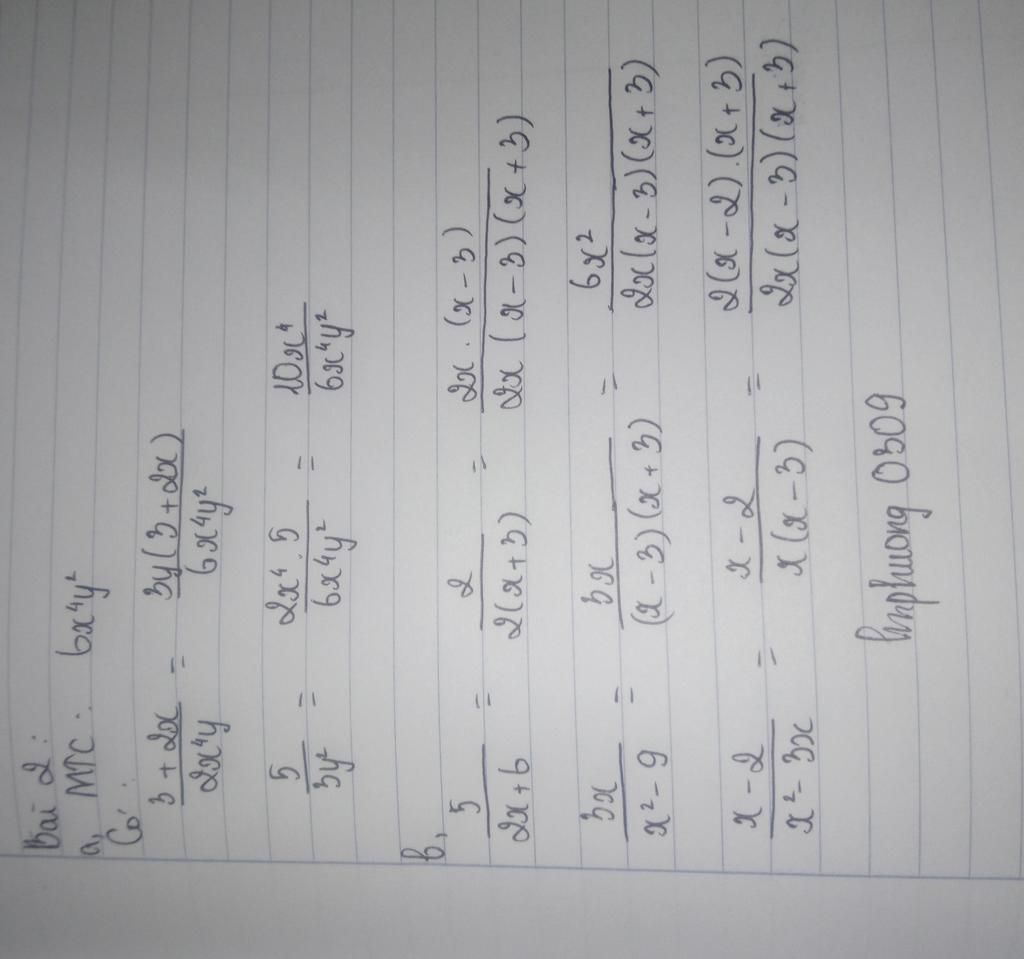 Bài 2:
a, MTC: 6x⁴y²
Có:
(3 + 2x)/(2x⁴y) = (3y(3 + 2x))/(6x⁴y²)
5/(3y²) = (2x⁴ . 5)/(6x⁴y²) = (10x⁴)/(6x⁴y²)
b,
5/(2x+6) = 2/(2(x+3)) = (2x . (x - 3))/(2x (x - 3)(x + 3))
3x/(x² - 9) = 3x/((x - 3)(x + 3)) = 6x²/(2x(x - 3)(x + 3))
(x - 2)/(x² - 3x) = (x - 2)/(x(x - 3)) = (2(x - 2).(x + 3))/(2x(x - 3)(x + 3))
0309